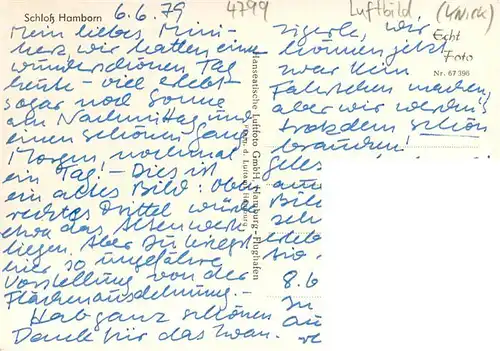 Schloß Hamborn
6.6.79
4799
Luftbild
Echt
Foto
Nr. 67 396
Hanseatische Luftfoto GmbH, Hamburg-Flughafen
Mein liebes Mini-
herz, wir hatten eine
wunderschönen Tag
heute – viel erlebt –
sogar noch Sonne
am Nachmittag und
einen schönen Gang
Morgen, nochmal
ein Tag! – Dies ist
ein altes Bild: oben
rechtes Drittel würde
etwa das Altenwerk
liegen. Aber Du kriegst
hier so ungefähre
Vorstellung von der
Flächenausdehnung. –
Hab ganz schönen
Dank für das
zigerle, wir
können jetzt
zwar kein
Fährschen machen,
aber wir werden's
trotzdem schön
brauchen!
geles
aum
Bil
seh
erleb
8.6
In
au